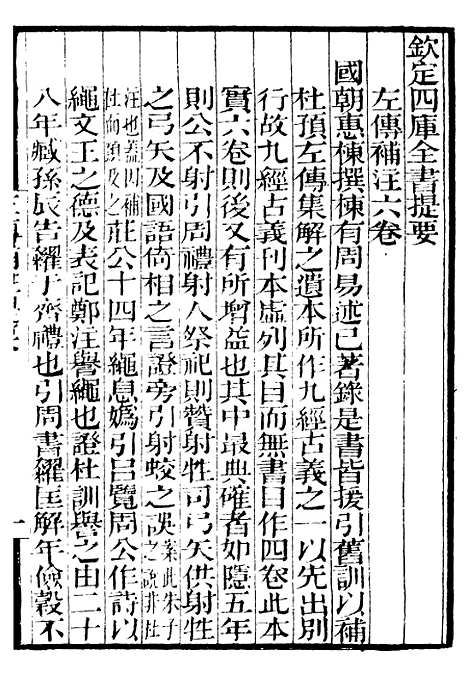 欽定四庫全書提要
左傳補注六卷
國朝惠棟撰棟有周易述已著錄是書皆援引舊訓以補
杜預左傳集解之遺本所作九經古義之一以先出別
行故九經古義刊本虛列其目而無書目作四卷此本
實六卷則後又有所增益也其中最典確者如隱五年
則公不射引周禮射人祭祀則贊射牲司弓矢供射牲
之弓矢及國語倚相之言證旁引射蛟之誤案此朱子之說非杜
注也蓋因補杜而類及之莊公十四年繩息媯引呂覽周公作詩以
繩文王之德及表記鄭注譽繩也證杜訓譽之由二十
八年臧孫辰告糴于齊禮也引周書糴匡解年儉穀不
一